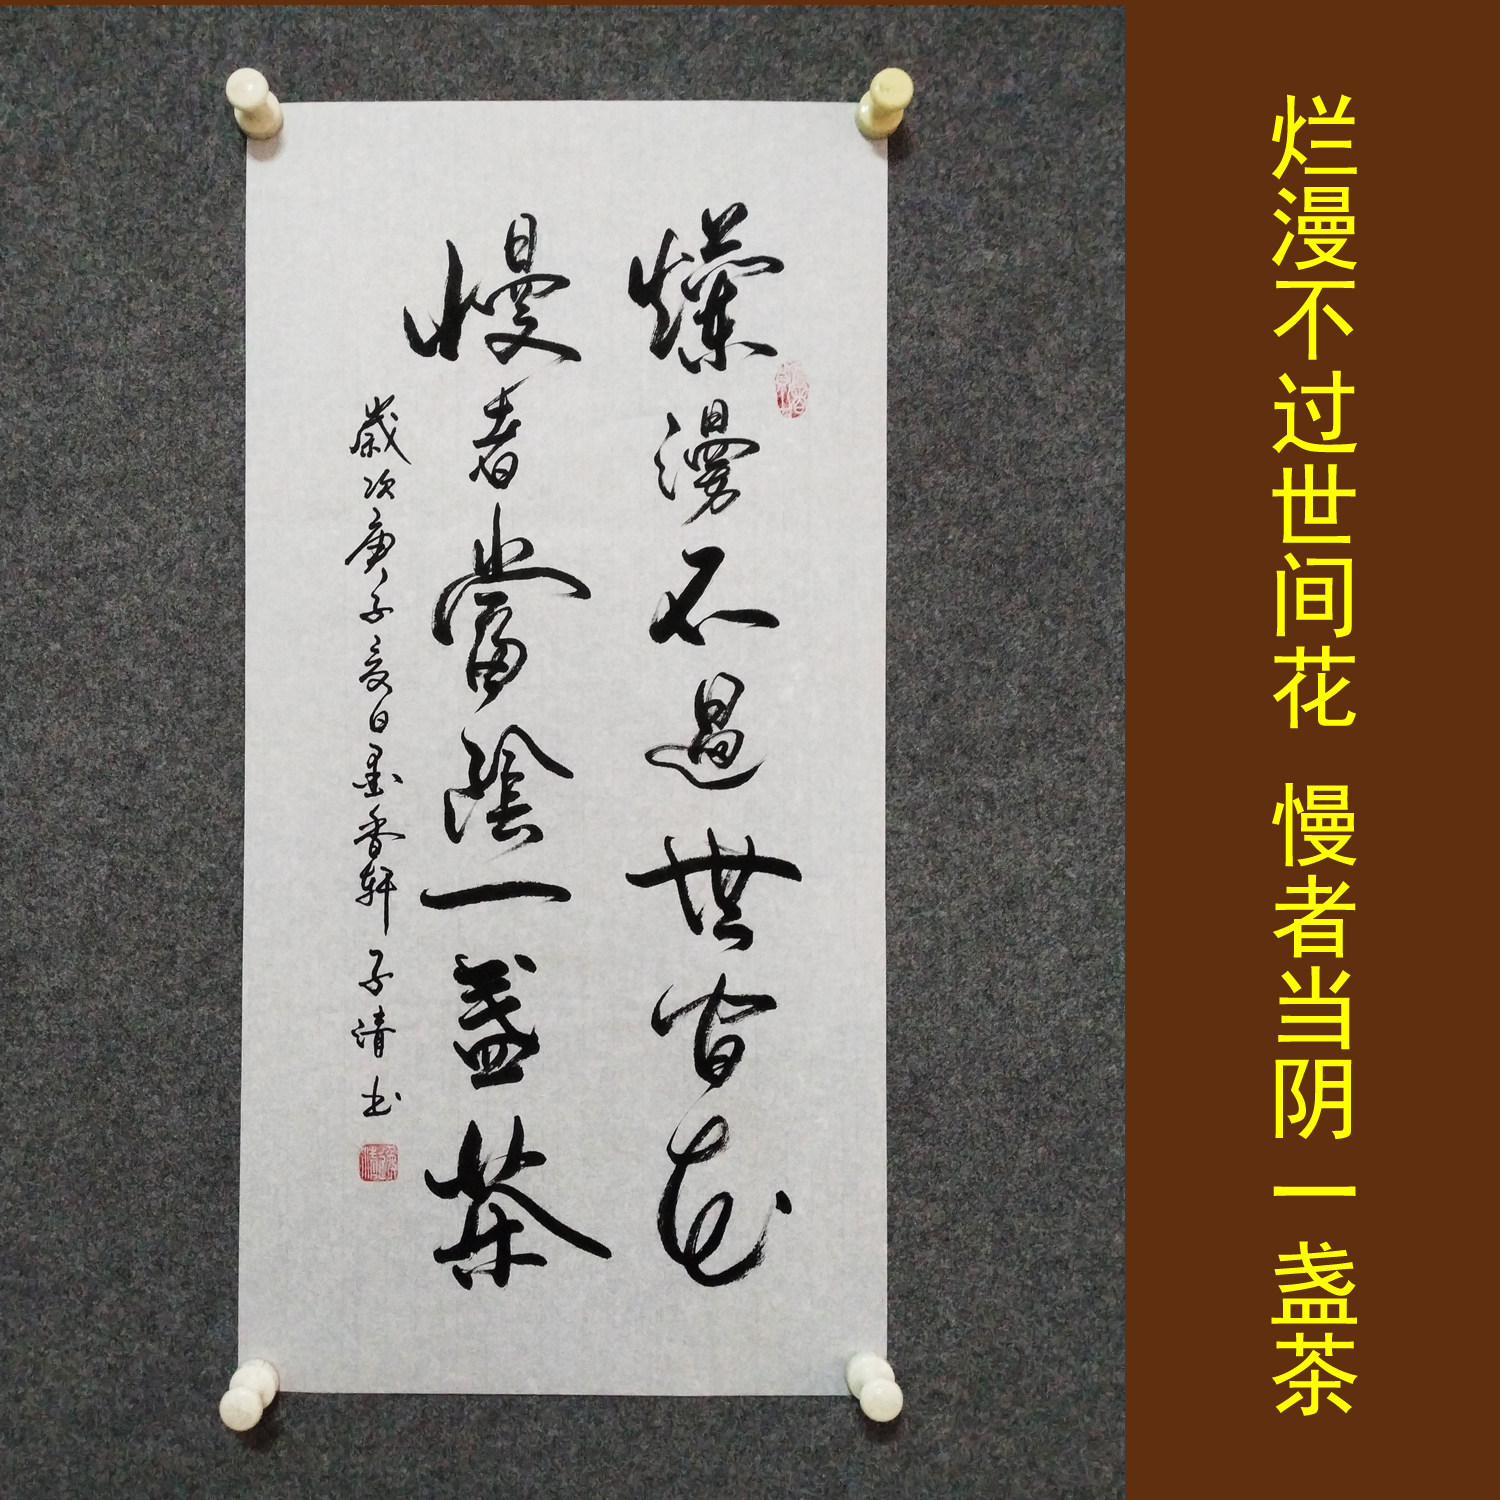 爛漫不過世間花
慢者當陰一盞茶
歲次庚子夏日墨香軒子清书
烂漫不过世间花 慢者当阴一盏茶